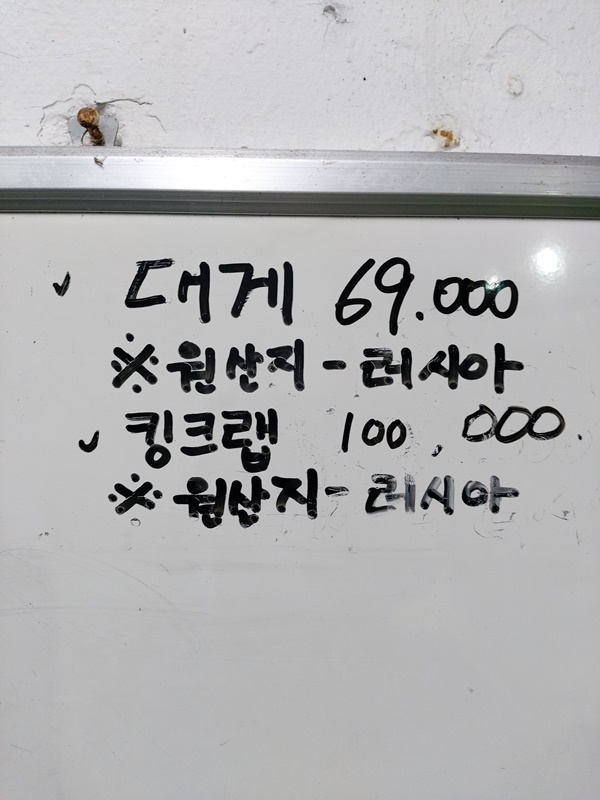 ✓ 대게 69.000
※원산지-러시아
✓ 킹크랩 100,000.
※원산지-러시아